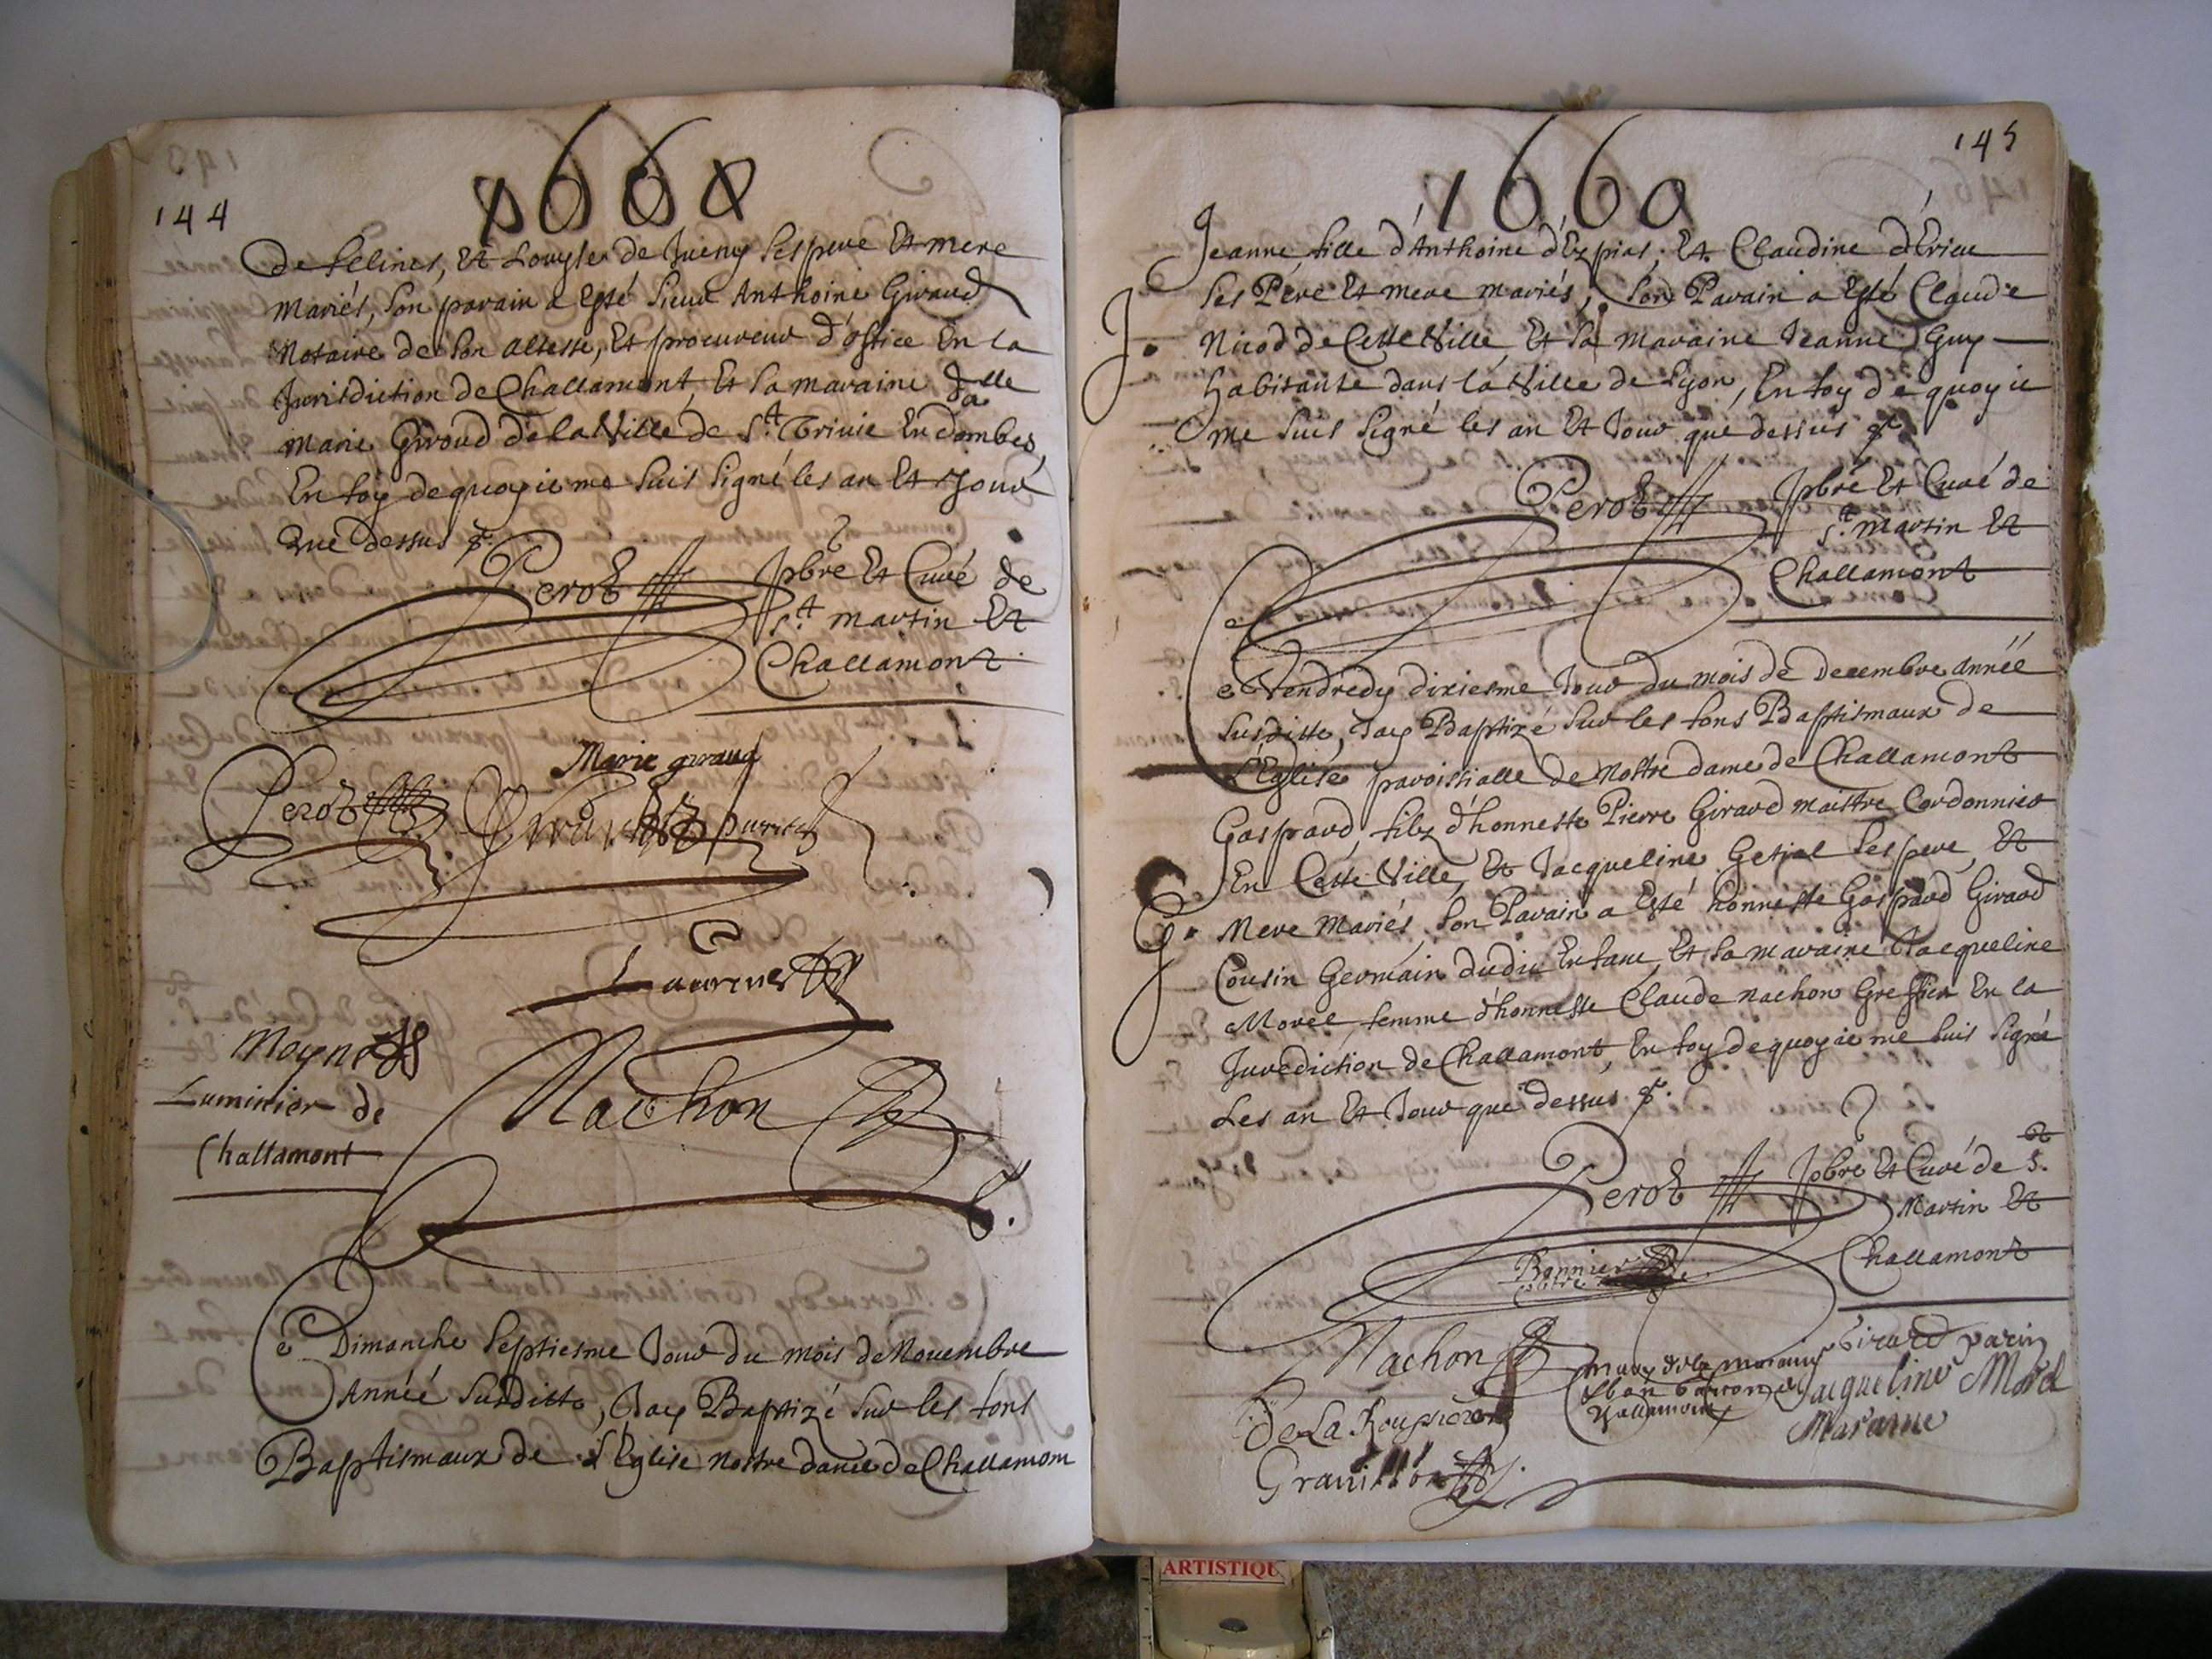 144
1660
de Felines, Et Louyse de Jueny Ses pere Et mere
Mariés, Son parain a Esté Sieur Anthoine Giraud
Notaire de Son altesse, Et procureur d'office En la
Jurisdiction de Challamont, Et Sa maraine dalle
Marie Giroud de la Ville de St. Trivie En dombes,
En foy de quoy ie me Suis Signé les an Et Jour
Que dessus
Perot pbre Et Curé de
St. martin Et
Challamont
Marie giraud
Perot
Laurens
Moyne
Luminier de
Challamont
Nachon
Ce Dimanche Septiesme Jour du mois de Nouembre
Année Susditte, J'ay Baptizé Sur les fons
Baptismaux de l'Eglise nostre dame de Challamont
145
1660
Jeanne fille d'Anthoine d'Espias, Et Claudine d'Erieu
Ses Pere Et mere mariés, Son Parain a Esté Claude
Nicod de Cette Ville, Et Sa maraine Jeanne Guy
habitante dans la Ville de Lyon, En foy de quoy ie
me Suis Signé les an Et Jour que dessus
Perot pbre Et Curé de
St. martin Et
Challamont
Ce Vendredy dixiesme Jour du mois de Decembre Année
Susditte, J'ay Baptizé Sur les fons Baptismaux de
L'Eglise paroissialle de Nostre dame de Challamont
Gasprard, filz d'honneste Pierre Giraud maistre Cordonnier
En Cette Ville, Et Jacqueline Ses pere Et
Mere Mariés, Son Parain a Esté honneste Gaspard Giraud
Cousin Germain dudit Enfant, Et Sa maraine Jacqueline
Morel femme d'honneste Claude Nachon Greffier En la
Jurediction de Challamont, En foy de quoy ie me Suis Signé
Les an Et Jour que dessus
Perot pbre Et Curé de St.
Martin Et
Challamont
Bonnier
Nachon
Girard parin
Jacqueline Morel
Maraine
De La
ARTISTIQU